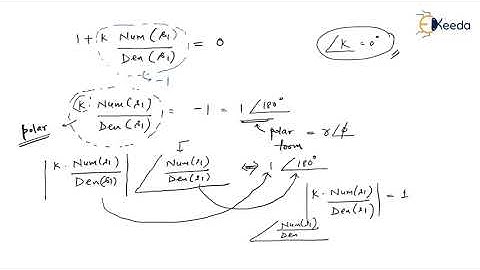 1 + K Num(s1) / Den(s1) = 0
∠K = 0°
Ekeeda
-1
K · Num(s1) / Den(s1) = -1 = 1∠180°
polar
polar form = r∠φ
|K · Num(s1) / Den(s1)| ∠Num(s1) / Den(s1) ⇔ 1 ∠180°
|K · Num(s1) / Den(s1)| = 1
∠Num(s1) / Den